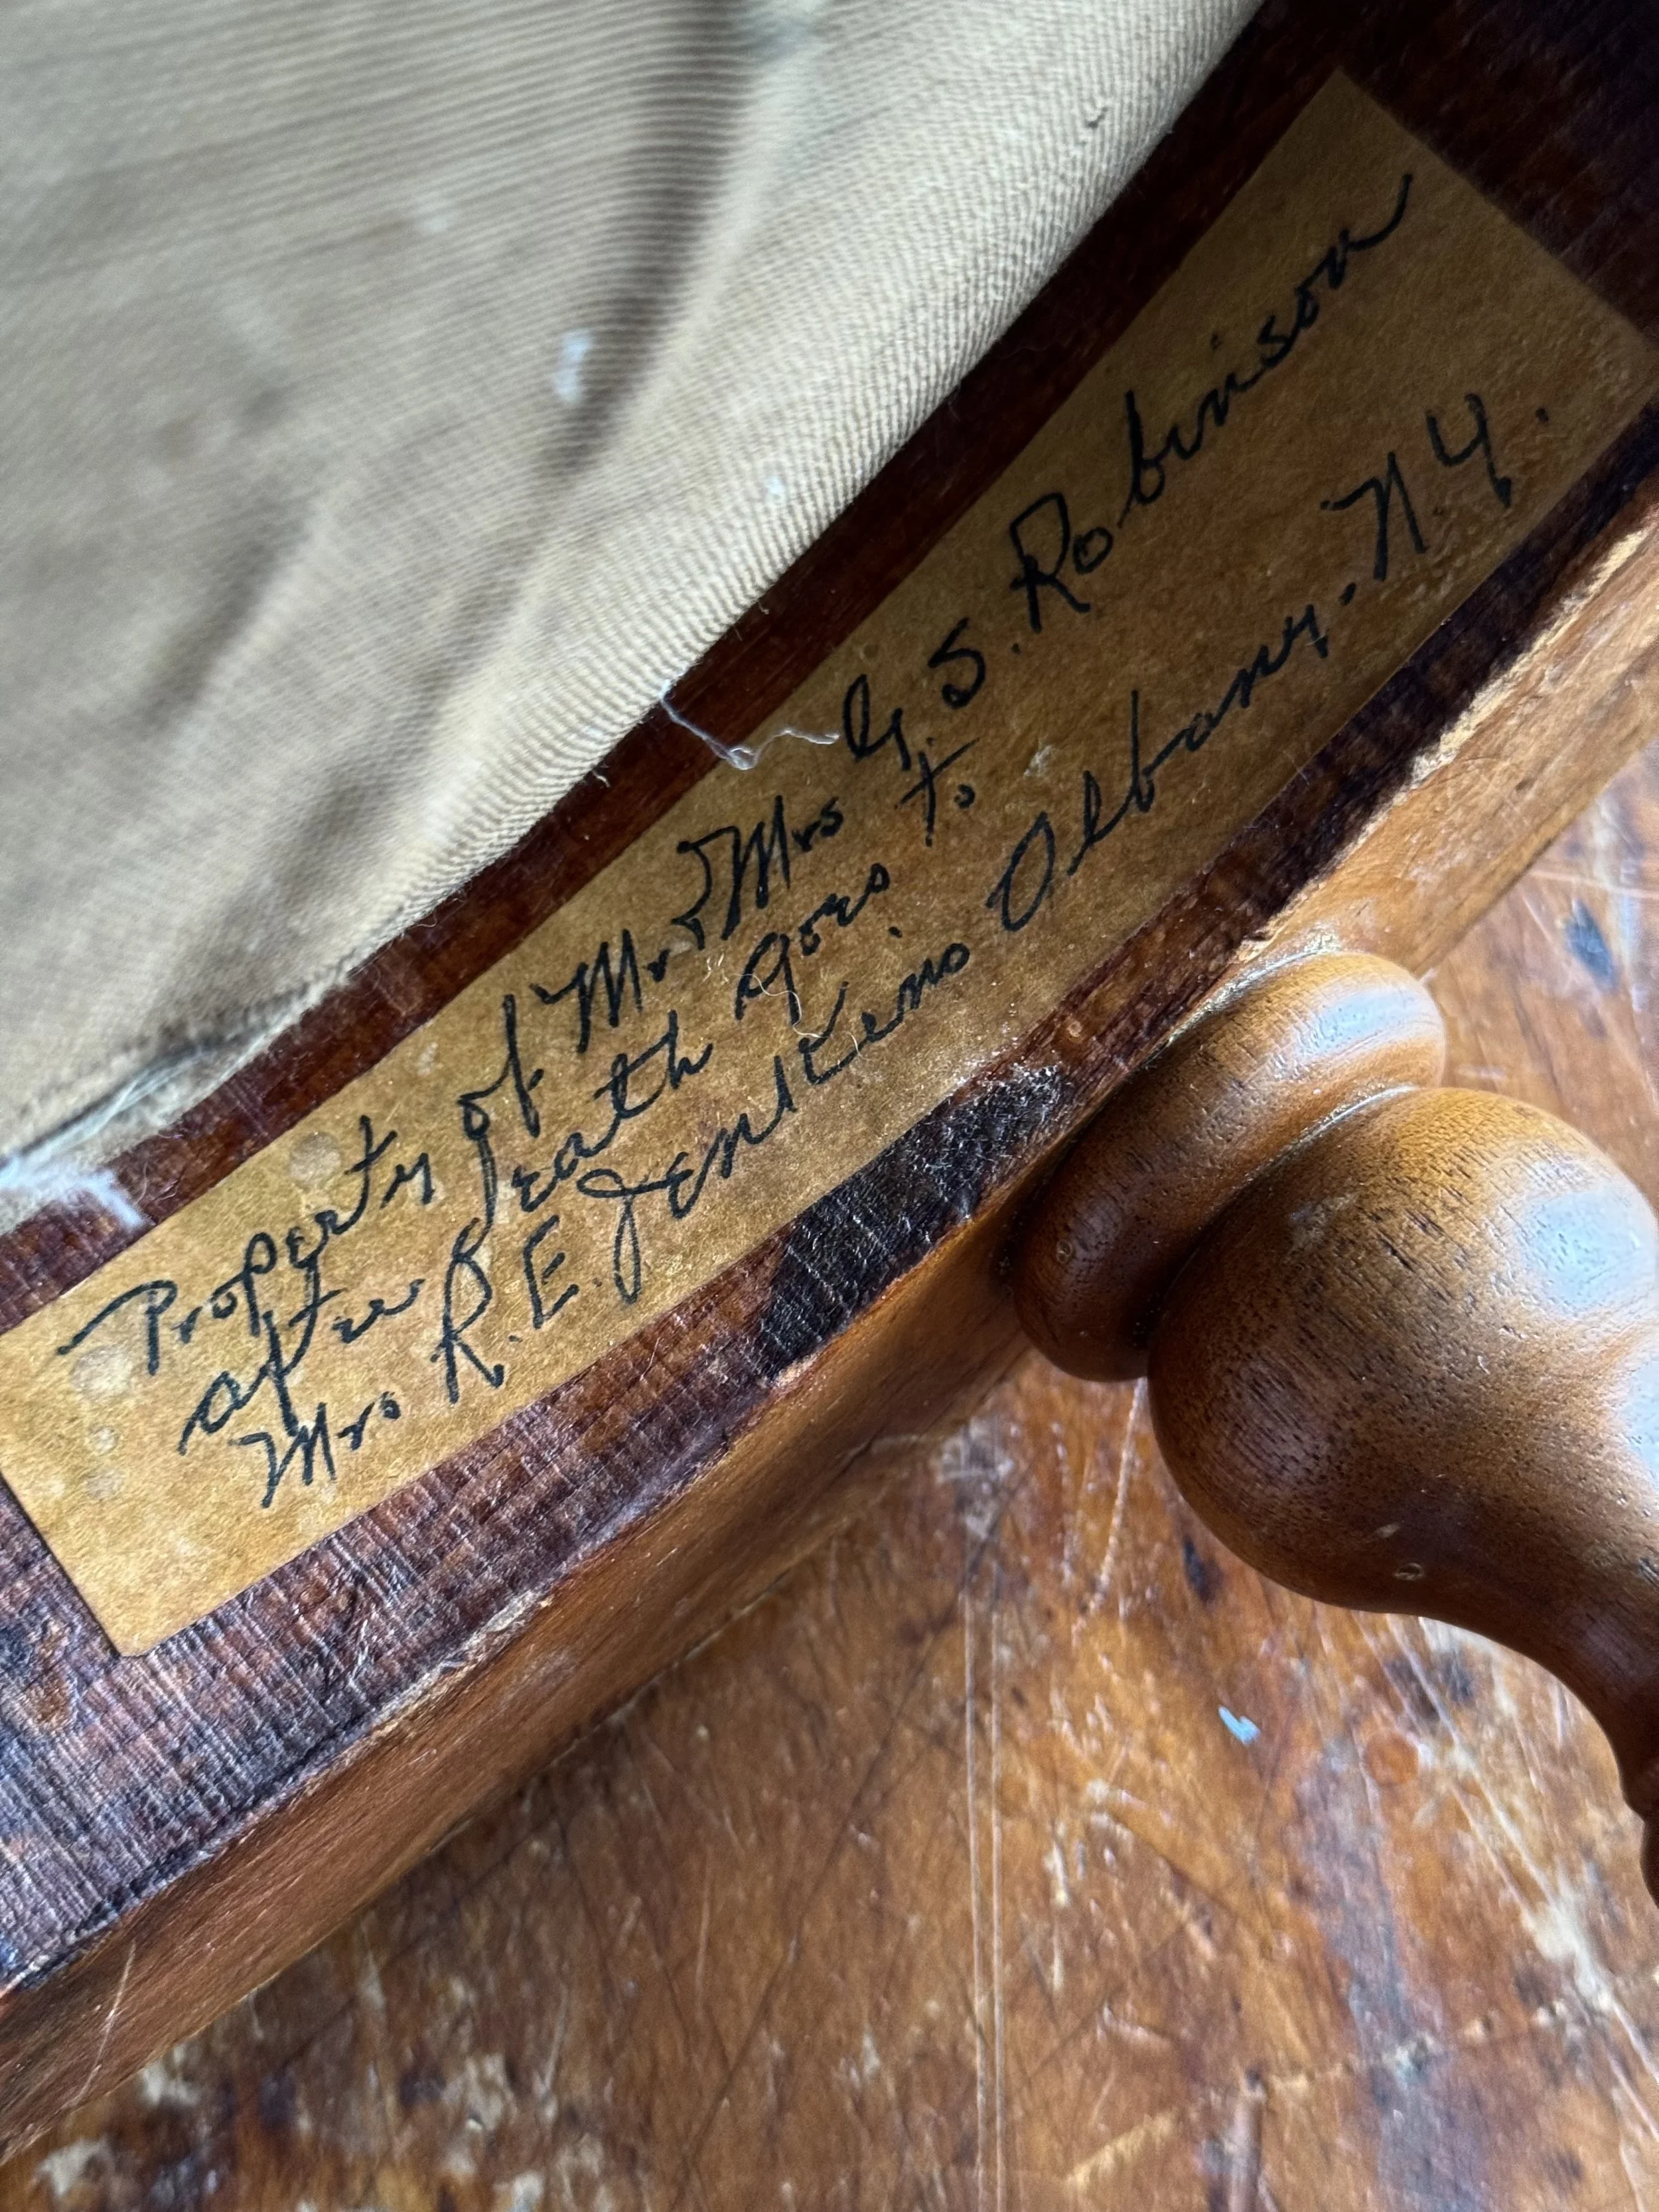 Property of Mr & Mrs G. S. Robinson
after Death goes to
Mrs R. E. Jenkins Albany. N.Y.